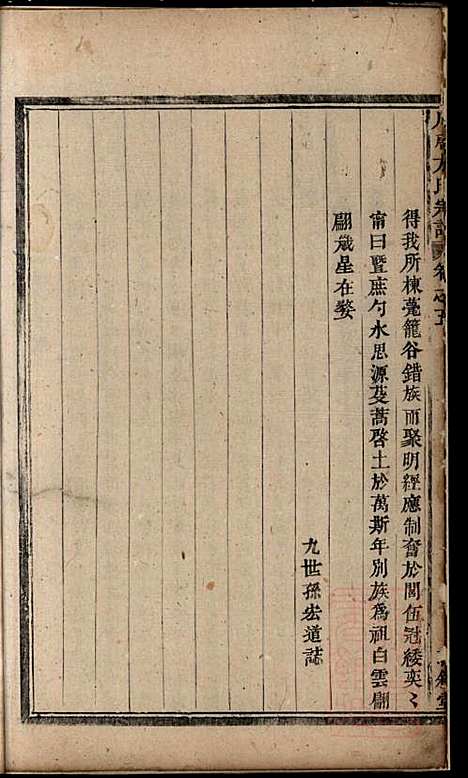 得我所棟甍籠谷錯族而聚明經應制奮於閭伍冠緌奕〻
甯曰暨庶勺水思源芟蒿啓土於萬斯年別族為祖白雲翩
翩歲星在婺
九世孫宏道誌